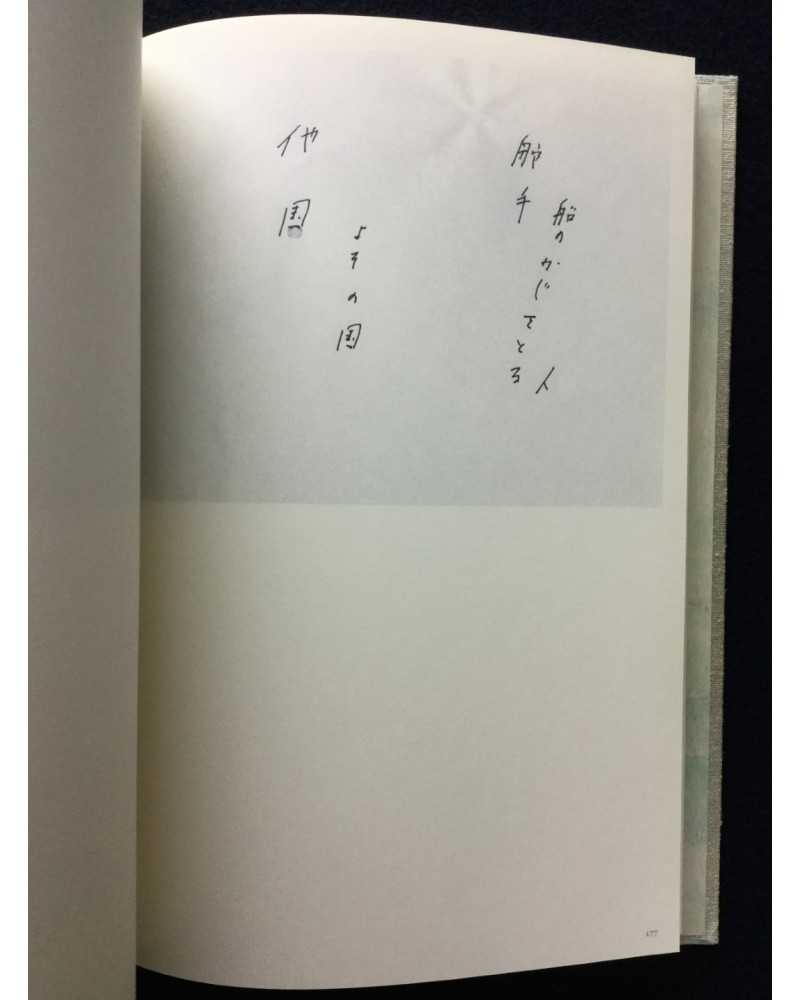 舵手
船のかじをとる人
他国
よその国